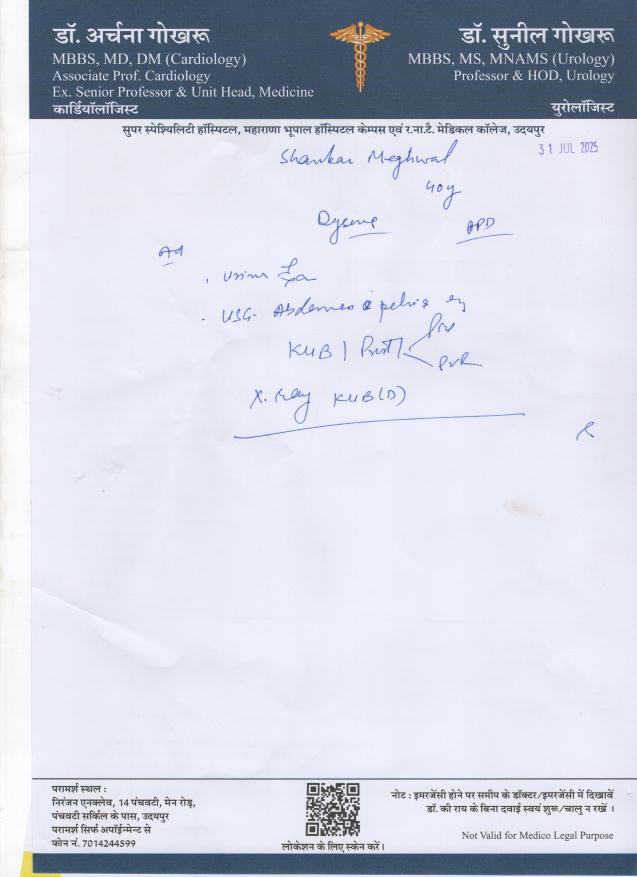 डॉ. अर्चना गोखरू
MBBS, MD, DM (Cardiology)
Associate Prof. Cardiology
Ex. Senior Professor & Unit Head, Medicine
कार्डियॉलॉजिस्ट
डॉ. सुनील गोखरू
MBBS, MS, MNAMS (Urology)
Professor & HOD, Urology
युरोलॉजिस्ट
सुपर स्पेश्यिलिटी हॉस्पिटल, महाराणा भूपाल हॉस्पिटल केम्पस एवं र.ना.टै. मेडिकल कॉलेज, उदयपुर
31 JUL 2025
Shankar Meghwal
40y
APD
Urine
USG- Abdomen & pelvis
KUB | Prost
Pre
PVR
X. Ray KUB (D)
परामर्श स्थल :
निरंजन एनक्लेव, 14 पंचवटी, मेन रोड़,
पंचवटी सर्किल के पास, उदयपुर
परामर्श सिर्फ अपॉईन्मेन्ट से
फोन नं. 7014244599
लोकेशन के लिए स्केन करें।
नोट : इमरजेंसी होने पर समीप के डॉक्टर/इमरजेंसी में दिखावें
डॉ. की राय के बिना दवाई स्वयं शुरू/चालु न रखें ।
Not Valid for Medico Legal Purpose